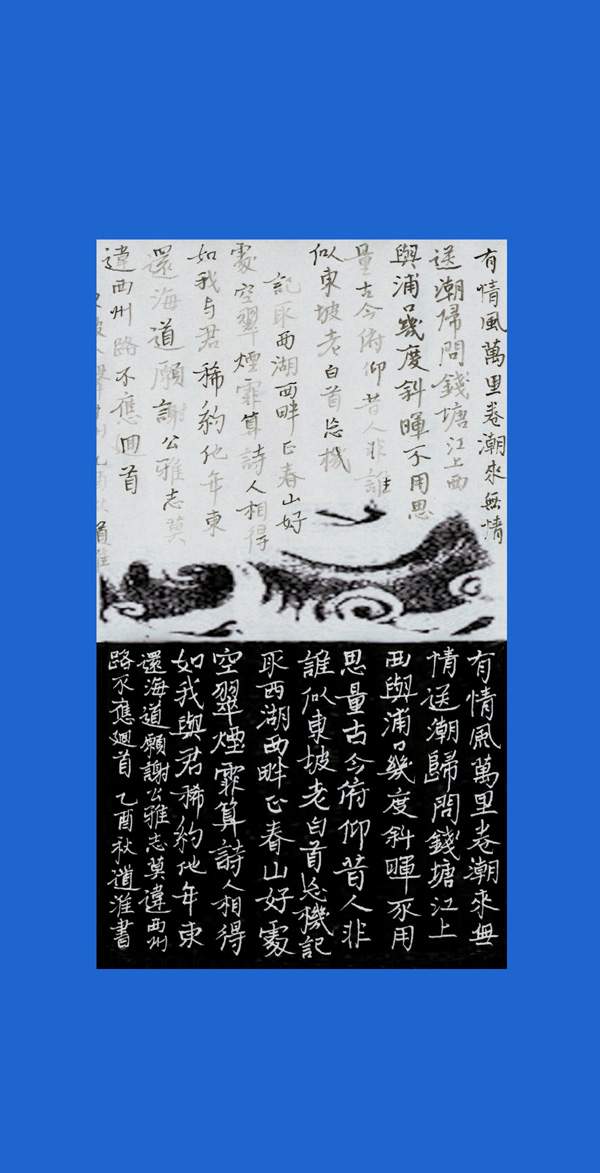 有情風萬里卷潮來無情
送潮帰問錢塘江上西
與浦口幾度斜暉不用思
量古今俯仰昔人非誰
似東坡老白首忘機
記取西湖西畔正春山好
處空翠煙霏算詩人相得
如我与君稀約他年東
還海道願謝公雅志莫
違西州路不應迴首
乙酉秋
有情風萬里卷潮來無
情送潮歸問錢塘江上
西與浦口幾度斜暉不用
思量古今俯仰昔人非
誰似東坡老白首忘機記
取西湖西畔正春山好處
空翠煙霏算詩人相得
如我與君稀約他年東
還海道願謝公雅志莫違西州
路不應迴首 乙酉秋 道淮書